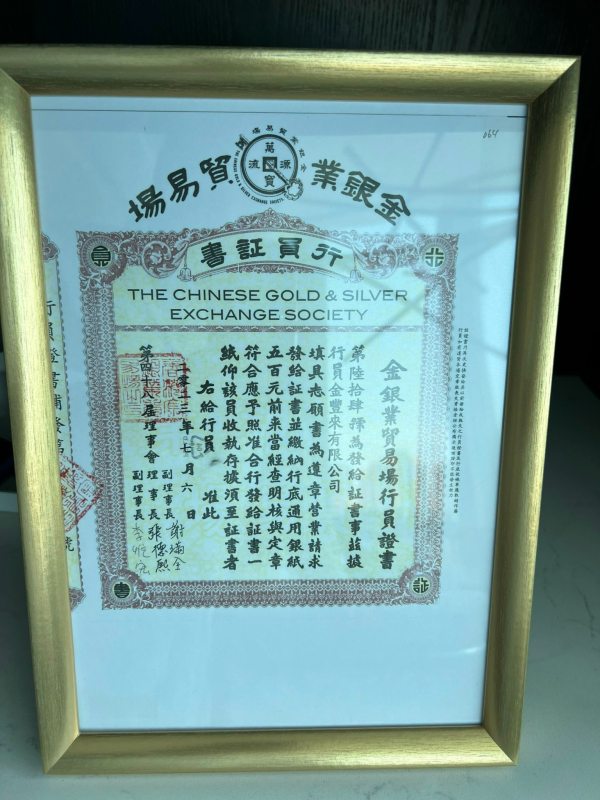 064
金銀業貿易場
金銀業貿易場
萬寶源流
行員証書
THE CHINESE GOLD & SILVER
EXCHANGE SOCIETY
金銀業貿易場行員證書
第陸拾肆號為發給証書事茲據
行員金豐來有限公司
填具志願書為遵章營業請求
發給証書並繳納行底通用銀紙
五百元前來當經查明核與定章
符合應予照准合行發給証書一
紙仰該員收執存據須至証書者
右給行員 准此
二零一三年七月六日
第四十八屆理事會
副理事長 謝滿全
理事長 張德熙
副理事長 李
行員證書補發第
號
行
員
証
書